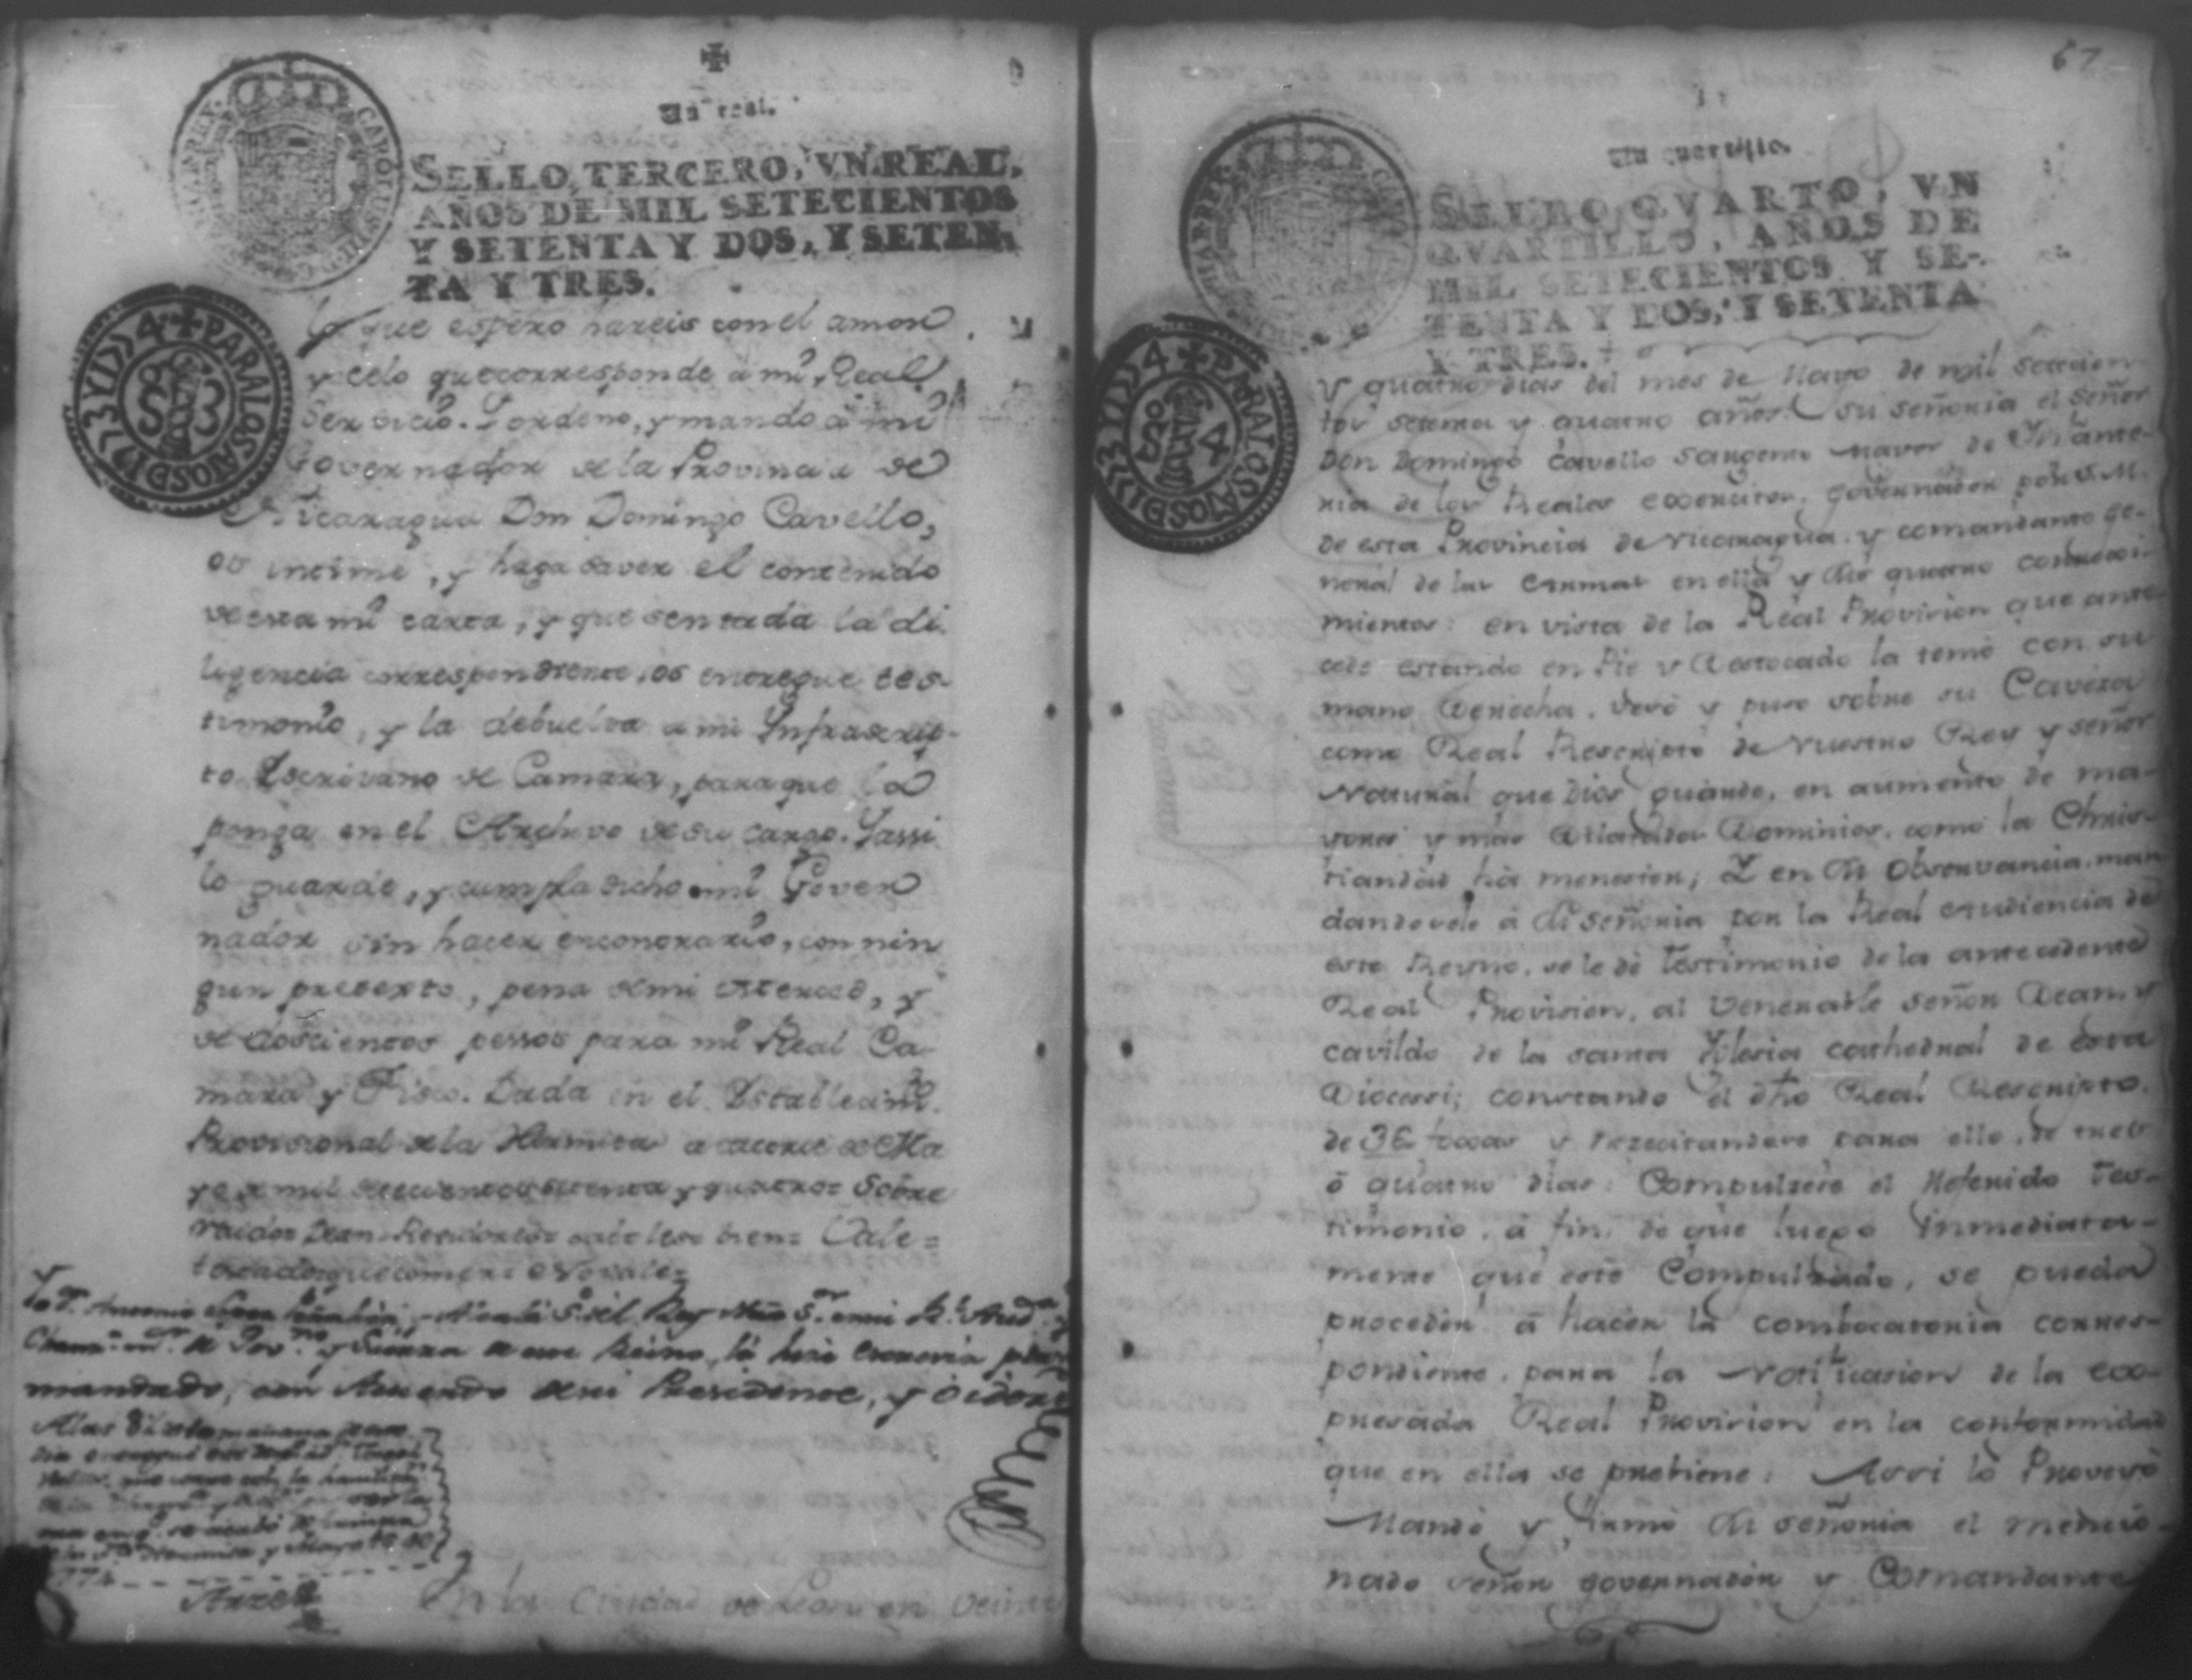 Un real.
SELLO TERCERO, VN REAL,
AÑOS DE MIL SETECIENTOS
Y SETENTA Y DOS, Y SETEN-
TA Y TRES.
CAROLUS III
✠ PARA LOS AÑOS DE 1773 Y 1774
So 3
lo que espero hareis con el amor
y celo que corresponde á mi Real
servicio. Y ordeno, y mando á mi
Governador de la Provincia de
Nicaragua Don Domingo Cavello,
os intime, y haga saver el contenido
de esta mi carta, y que sentada la di
ligencia correspondiente, os entregue tes-
timonio, y la debuelva a mi Infrascrip-
to Escrivano de Camara, para que la
ponga en el Archivo de su cargo. Y assi
lo guarde, y cumpla dicho mi Gover
nador sin hacer en contrario, con nin
gun pretexto, pena de mi merced, y
de doscientos pessos para mi Real Ca
mara y Fisco. Dada en el Establecim.to
Provisional de la Hermita a catorce de Ma
yo de mil setecientos setenta y quatro= Sobre
Vale=
Yo D. Antonio S.º del Rey Nro S.or en su R.l Aud.a
Cham.a de Gov.no y Guerra de este Reino, la hice escrevir por su
mandado, con Acuerdo de su Presidente, y Oidores
Alas de la mañana
dia entregué
que se acabó
Hermita y Mayo
1774
Arze
En la Ciudad de Leon en veinte
67
Un quartillo.
SELLO QVARTO, VN
QVARTILLO, AÑOS DE
MIL SETECIENTOS Y SE-
TENTA Y DOS, Y SETENTA
Y TRES.
✠ PARA LOS AÑOS DE 1773 Y 1774
So 4
y quatro dias del mes de Mayo de mil setecien
tos setenta y quatro años. Su señoria el señor
Don Domingo Cavello Sargento mayor de Infante-
ria de los Reales exercitos, governador por S. M.
de esta Provincia de Nicaragua y comandante ge-
neral de las Armas en ella y su quatro corregi-
mientos: en vista de la Real Provision que ante
cede estando en Pie y Destocado la tomó con su
mano derecha, vesó y puso sobre su Caveza
como Real Rescripto de Nuestro Rey y señor
Natural que Dios guarde, en aumento de ma-
yores y mas Dilatados Dominios, como la Chris-
tiandad há menester; Y en su observancia, man
dandosele á su señoria por la Real Audiencia de
este Reyno, se le dé Testimonio de la antecedente
Real Provision, al Venerable señor Dean, y
cavildo de la santa Yglesia cathedral de esta
Diocessi; constando el dho Real Rescripto,
de 36 foxas y nezecitandose para ello, de tres
ó quatro dias: Compulzese el Referido Tes-
timonio, á fin, de que luego inmediata-
mente que esté Compulzado, se pueda
proceder á hacer la combocatoria corres-
pondiente, para la Notificasion de la ex-
presada Real Provision en la conformidad
que en ella se prebiene: Assi lo Proveyó
Mandó y firmó su señoria el mencio-
nado señor governador y Comandante